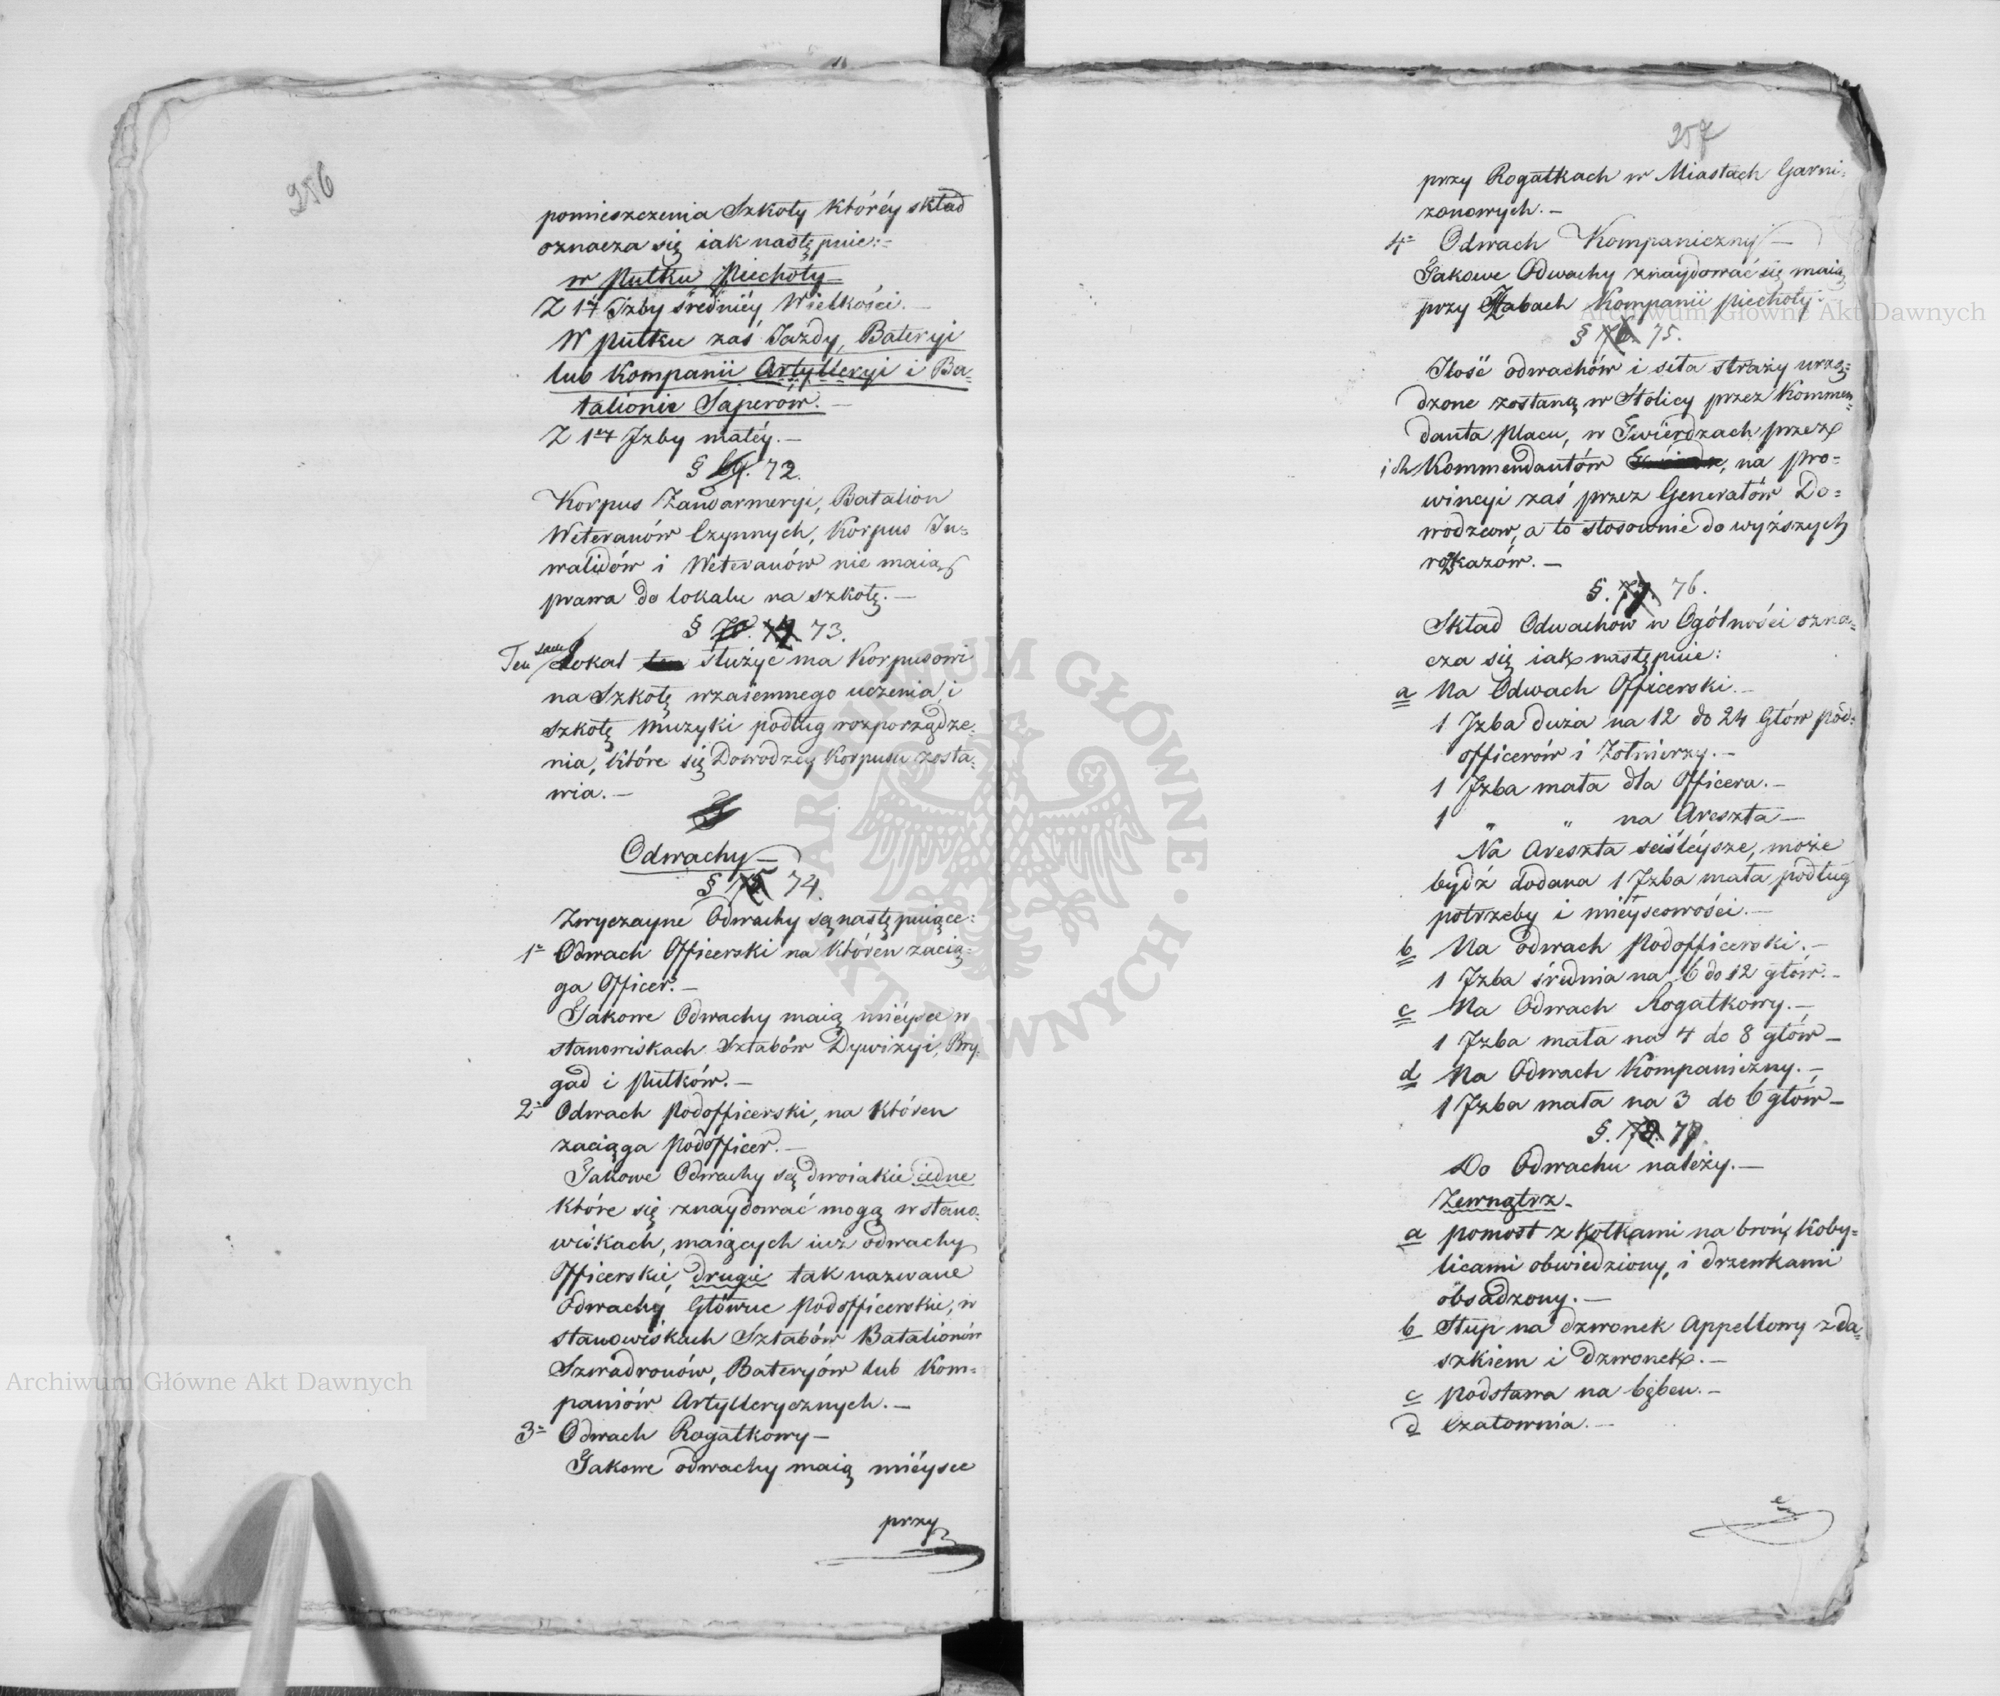 256
pomieszczenia Szkoły któréy skład
oznacza się iak następuie:-
w Pułku Piechoty
Z 1éy Izby średniéy Wielkości. -
W pułku zaś Jazdy, Bateryi
lub Kompanii Artylleryi i Ba-
talionie Saperów. -
Z 1éy Izby małéy. -
§ 72.
Korpus Żandarmeryi, Batalion
Weteranów Czynnych, Korpus In-
walidów i Weteranów nie maią
prawa do lokalu na szkołę. -
§ 70. 73.
Ten sam Lokal służyć ma Korpusowi
na Szkołę wzaiemnego uczenia i
szkołę Muzyki podług rozporządze-
nia, które się Dowodzcy Korpusu zosta-
wia. -
Odwachy -
§ 74.
Zwyczayne Odwachy są następuiące:
1- Odwach Officerski na któren zacią-
ga Officer. -
Takowe Odwachy maią miéysce w
stanowiskach Sztabów Dywizyi, Bry-
gad i Pułków. -
2- Odwach Podofficerski, na któren
zaciąga Podofficer. -
Takowe Odwachy są dwoiakie iedne
które się znaydować mogą w stano-
wiskach, maiących iuż odwachy
Officerskie, drugie tak nazwane
Odwachy Główne Podofficerskie, w
stanowiskach Sztabów Batalionów
Szwadronów, Bateryów lub Kom-
paniów Artyllerycznych. -
3- Odwach Rogatkowy -
Takowe odwachy maią miéysce
przy
257
przy Rogatkach w Miastach Garni-
zonowych. -
4- Odwach Kompaniczny -
Takowe Odwachy znaydować się maią
przy Sztabach Kompanii piechoty.
§ 76. 75.
Ilość odwachów i siła straży urzą-
dzone zostaną w Stolicy przez Kommen-
danta Placu, w Twierdzach przez
ich Kommendantów, na pro-
wincyi zaś przez Generałów Do-
wodzcow, a to stosownie do wyższych
rozkazów. -
§. 77. 76.
Skład Odwachów w Ogólności ozna-
cza się iak następuie:
a Na Odwach Officerski. -
1 Izba duża na 12 do 24 Głów pod-
officerów i Żołnierzy. -
1 Izba mała dla Officera. -
1 " " na Areszta -
Na Areszta sciśléysze, może
bydź dodana 1 Izba mała podług
potrzeby i miéyscowości. -
b Na odwach Podofficerski. -
1 Izba średnia na 6 do 12 głów. -
c Na Odwach Rogatkowy. -
1 Izba mała na 4 do 8 głów -
d Na Odwach Kompaniczny. -
1 Izba mała na 3 do 6 głów -
§. 78. 77.
Do Odwachu należy. -
Zewnątrz -
a pomost z kołkami na broń, koby-
licami obwiedziony, i drzewkami
obsadzony. -
b Słup na dzwonek Appellowy z da-
szkiem i dzwonek. -
c podstawa na bęben. -
d Czatownia. -
Archiwum Główne Akt Dawnych
Archiwum Główne Akt Dawnych
ARCHIWUM GŁÓWNE AKT DAWNYCH